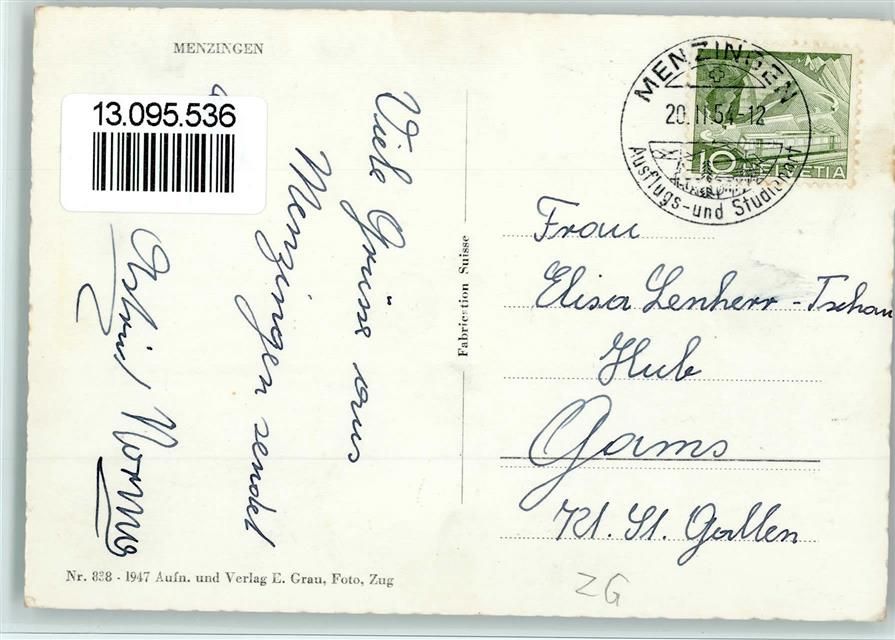 MENZINGEN
13.095.536
Viele Grüsse aus
Menzingen sendet
Astrid
MENZINGEN
20.11.54-12
Ausflugs- und Studienort
10 HELVETIA
Fabrication Suisse
Frau
Elisa Lenherr-Tschau
Hub
Gams
Kt. St. Gallen
Nr. 838 - 1947 Aufn. und Verlag E. Grau, Foto, Zug
ZG